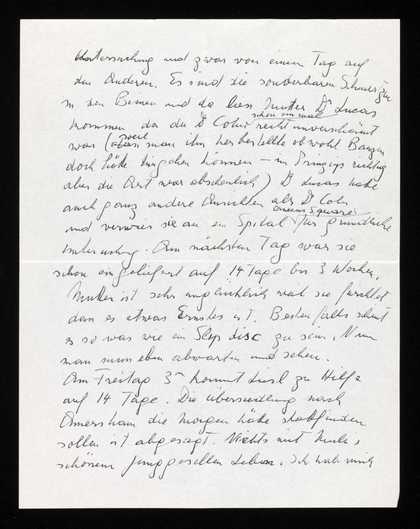 Untersuchung und zwar von einem Tag auf
den Anderen. Es sind die sonderbaren Schmerzen
in den Beinen und da liess Mutter Dr Lucas
kommen da der Dr Cohn schon einmal recht unverschämt
war (weil man ihn herbestellte obwohl
doch hätte hingehen können – im Prinzip richtig
aber die Art war abscheulich) Dr Lucas hatte
auch ganz andere Ansichten als Dr Cohn
und verwies sie an ein Spital Queens Square für gründliche
Untersuchung. Am nächsten Tag war sie
schon eingeliefert auf 14 Tage bis 3 Wochen.
Mutter ist sehr unglücklich weil sie fürchtet
dass es etwas Ernstes ist. Besten falls scheint
es so was wie ein Slip disc zu sein. Nun
man muss eben abwarten und sehen.
Am Freitag 3ten kommt Liesl zu Hilfe
auf 14 Tage. Die Übersiedlung nach
Amersham die morgen hätte stattfinden
sollen ist abgesagt. Nichts mit
schönem Junggesellen Leben. Ich hab mich